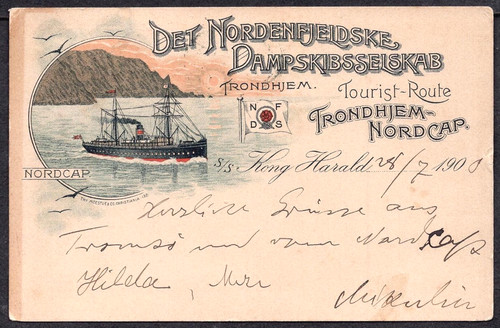 DET NORDENFJELDSKE
DAMPSKIBSSELSKAB
TRONDHJEM.
Tourist-Route
TRONDHJEM-
NORDCAP.
N F
D S
S/S Kong Harald 28/7 1900
NORDCAP
Herzliche Grüsse aus
Tromsö und vom Nordkap
Hilda,